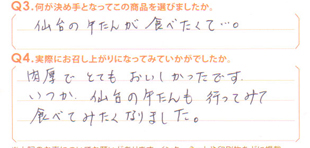 Q3.何が決め手となってこの商品を選びましたか。
仙台の牛たんが食べたくて…。
Q4.実際にお召し上がりになってみていかがでしたか。
肉厚でとてもおいしかったです。
いつか、仙台の牛たんも行ってみて
食べてみたくなりました。